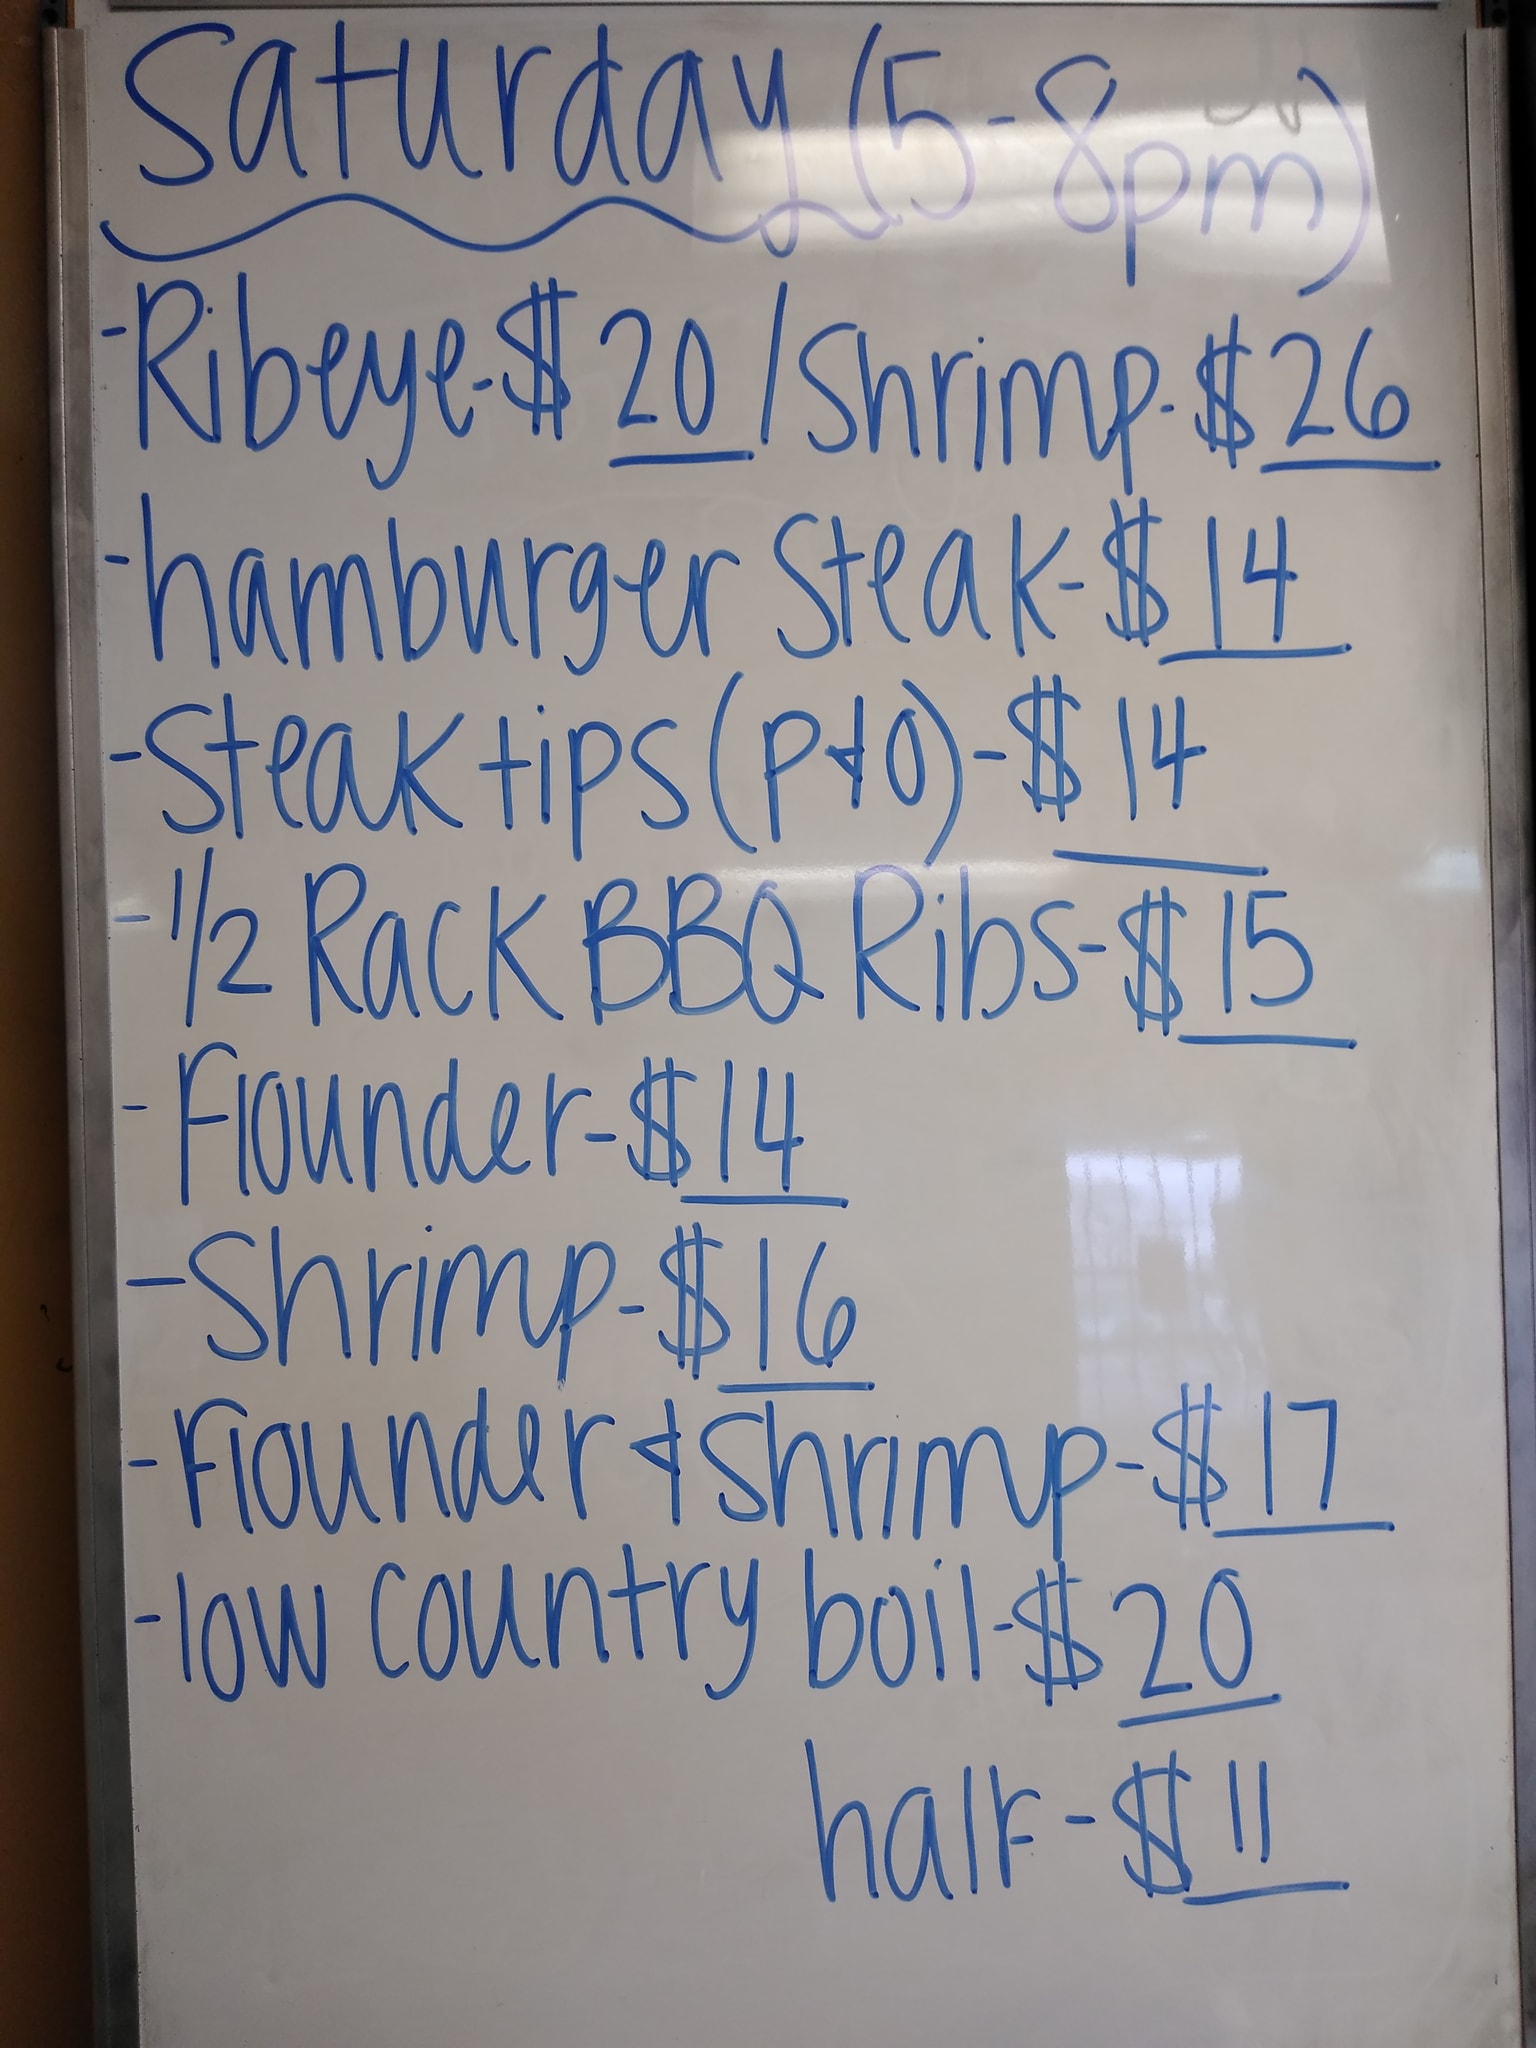 Saturday (5-8pm)
-Ribeye-$20/Shrimp-$26
-hamburger Steak-$14
-Steak tips (P&O)-$14
-1/2 Rack BBQ Ribs-$15
-Flounder-$14
-Shrimp-$16
-Flounder & Shrimp-$17
-low country boil-$20
half-$11